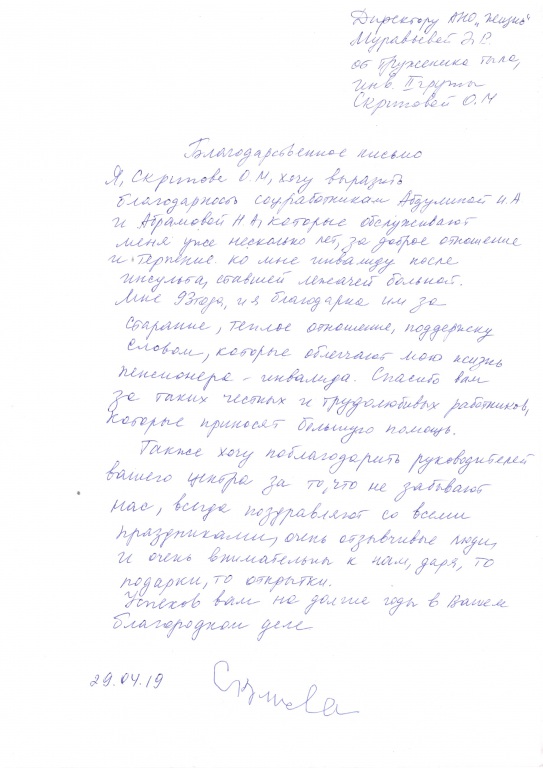 Директору АНО „Жизнь"
Муравьевой Э.Р.
от труженика тыла,
инв. II группы
Скриповой О.М
Благодарственное письмо
Я, Скрипова О.М, хочу выразить
благодарность соцработникам Абдулиной И.А
и Абрамовой Н А, которые обслуживают
меня уже несколько лет, за доброе отношение
и терпение ко мне инвалиду после
инсульта, ставшей лежачей больной.
Мне 93года, и я благодарна им за
старание, теплое отношение, поддержку
словом, которые облегчают мою жизнь
пенсионера - инвалида. Спасибо вам
за таких честных и трудолюбивых работников,
которые приносят большую помощь.
Также хочу поблагодарить руководителей
вашего центра за то, что не забывают
нас, всегда поздравляют со всеми
праздниками, очень отзывчивые люди,
и очень внимательны к нам, даря, то
подарки, то открытки.
Успехов вам на долгие годы в Вашем
благородном деле
29.04.19